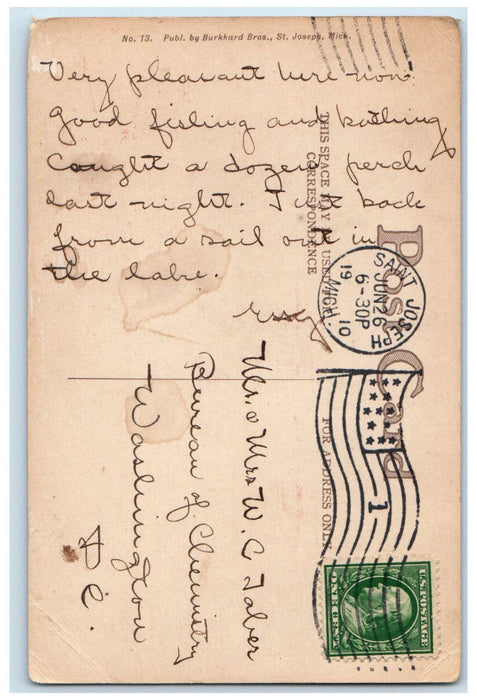 No. 13. Publ. by Burkhard Bros., St. Joseph, Mich.
Very pleasant here now.
Good fishing and bathing
Caught a dozen perch
last night. Just back
from a sail out in
the lake.
THIS SPACE MAY BE USED FOR
CORRESPONDENCE
Post Card
FOR ADDRESS ONLY
SAINT JOSEPH
JUN 26
6-30P
19 10
MICH.
1
Mr. & Mrs W. C Taber
Bureau of Chemistry
Washington
D C.
U.S. POSTAGE
ONE CENT